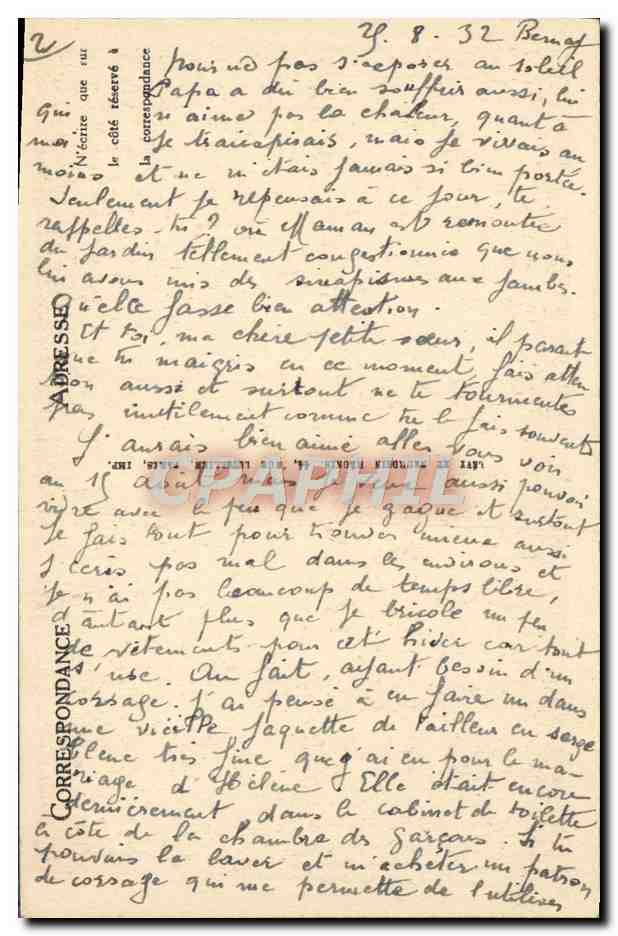 2
25. 8. 32 Bernay
pour ne pas s'exposer au soleil
Papa a dû bien souffrir aussi, lui
qui n'aime pas la chaleur, quant à
moi je transpirais, mais je vivais au
moins et ne m'étais jamais si bien portée.
Seulement je repensais à ce jour, te
rappelles-tu ? où Maman est remontée
du jardin tellement congestionnée que nous
lui avons mis des sinapismes aux jambes.
Qu'elle fasse bien attention.
Et toi, ma chère petite sœur, il paraît
que tu maigris en ce moment, fais atten
tion aussi et surtout ne te tourmentes
pas inutilement comme tu le fais souvent
J'aurais bien aimé aller vous voir
au 15 août mais je veux aussi pouvoir
vivre avec le peu que je gagne et surtout
je fais tout pour trouver mieux aussi
j'écris pas mal dans les environs et
je n'ai pas beaucoup de temps libre,
d'autant plus que je bricole un peu
de vêtements pour cet hiver car tout
s'use. Au fait, ayant besoin d'un
corsage. j'ai pensé à en faire un dans
une vieille jaquette de tailleur en serge
bleue très fine que j'ai eu pour le ma-
riage d'Hélène. Elle était encore
dernièrement dans le cabinet de toilette
à côté de la chambre des garçons. Si tu
pouvais la laver et m'acheter un patron
de corsage qui me permette de l'utiliser
N'écrire que sur
le côté réservé à
la correspondance
ADRESSE
CORRESPONDANCE
LEVY ET NEURDEIN RÉUNIS, 44, RUE LETELLIER, PARIS, IMP.
CPAPHIL